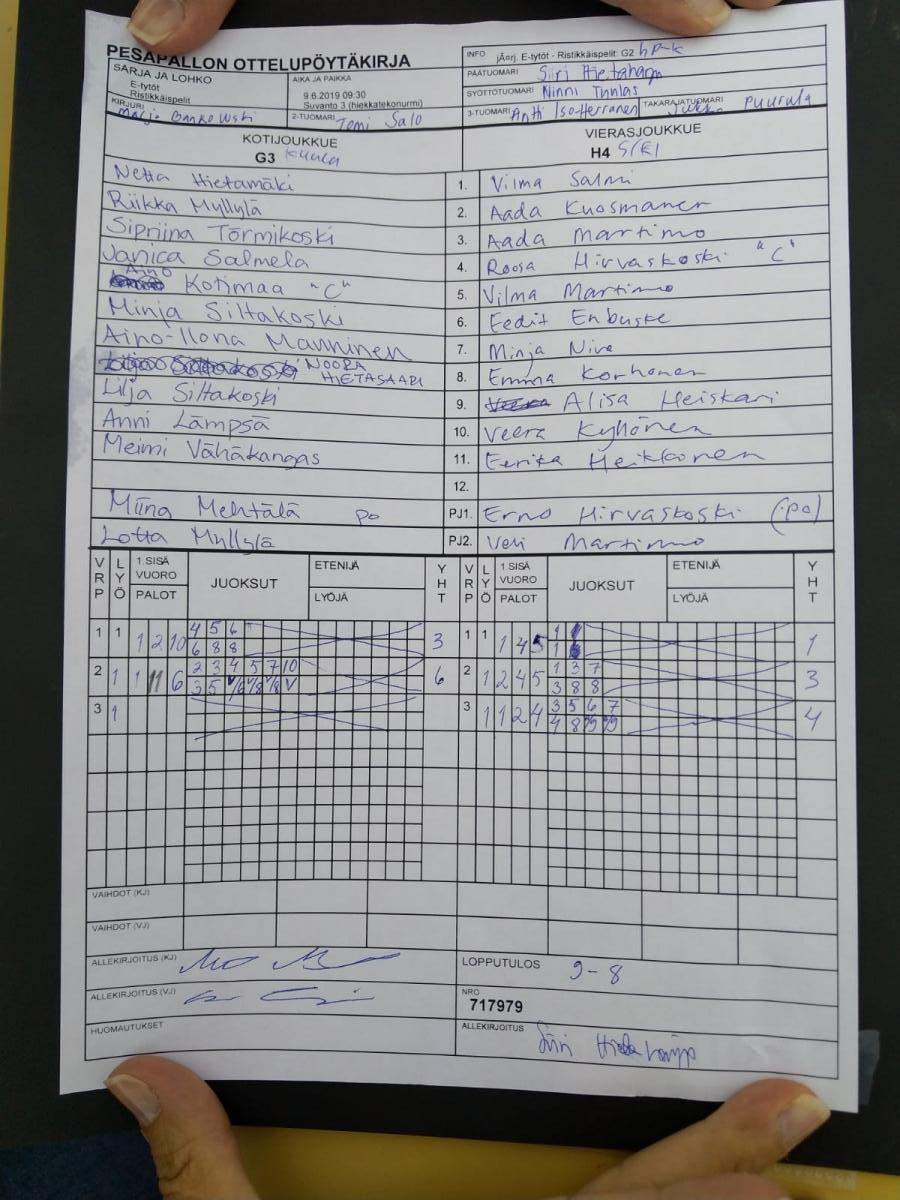 PESÄPALLON OTTELUPÖYTÄKIRJA
INFO jÄorj. E-tytöt - Ristikkäispelit: G2
SARJA JA LOHKO
E-tytöt
Ristikkäispelit
AIKA JA PAIKKA
9.6.2019 09:30
Suvanto 3 (hiekkatekonurmi)
PÄÄTUOMARI Siiri
SYÖTTÖTUOMARI Ninni
KIRJURI Marjo Bankowski
2-TUOMARI Tomi Salo
3-TUOMARI Antti Isoherranen
TAKARAJATUOMARI Jukka Puurula
KOTIJOUKKUE
G3
VIERASJOUKKUE
H4
Netta Hietamäki 1. Vilma Salmi
Riikka Myllylä 2. Aada Kuosmanen
Sipriina Törmikoski 3. Aada Martimo
Janica Salmela 4. Roosa Hirvaskoski "C"
Aino Kotimaa "C" 5. Vilma Martimo
Minja Siltakoski 6. Eedit Enbuske
Aino-Ilona Manninen 7. Minja Niva
NOORA HIETASAARI 8. Emma Korhonen
Lilja Siltakoski 9. Alisa Heiskari
Anni Lämpsä 10. Veera Kyhönen
Meimi Vähäkangas 11. Eerika Heikkonen
12.
Miina Mehtälä po PJ1. Erno Hirvaskoski (po)
Lotta Myllylä PJ2. Veli Martimo
VRP LYÖ 1.SISÄ VUORO PALOT JUOKSUT ETENIJÄ LYÖJÄ YHT VRP LYÖ 1.SISÄ VUORO PALOT JUOKSUT ETENIJÄ LYÖJÄ YHT
1 1 1 2 10 4 5 6 3 1 1 1 4 5 1 1
6 8 8 1
2 1 1 11 6 2 3 4 5 7 10 6 2 1 2 4 5 1 3 7 3
3 5 3 8 8
3 1 3 1 1 2 4 3 5 6 7 4
4 8
VAIHDOT (KJ)
VAIHDOT (VJ)
ALLEKIRJOITUS (KJ)
LOPPUTULOS 9-8
ALLEKIRJOITUS (VJ)
NRO
717979
HUOMAUTUKSET
ALLEKIRJOITUS Siiri